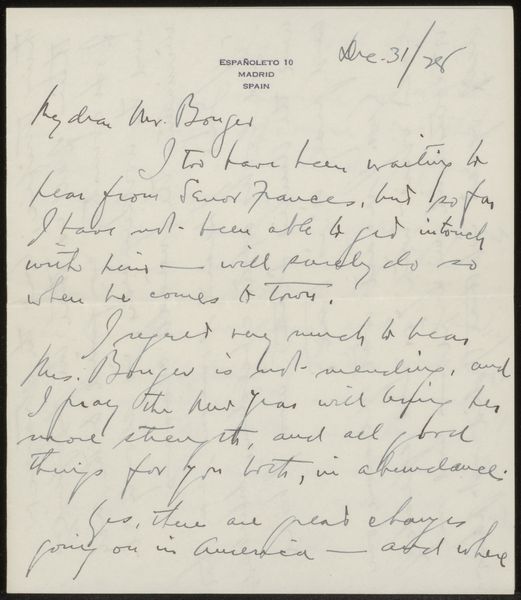 ESPAÑOLETO 10
MADRID
SPAIN
Dec. 31/28
My dear Mr. Bonger
I too have been waiting to
hear from Senor Frances, but so far
I have not been able to get in touch
with him — will surely do so
when he comes to town.
I regret very much to hear
Mrs. Bonger is not mending, and
I pray the New Year will bring her
more strength, and all good
things for you both, in abundance.
Yes, there are great changes
going on in America — and where